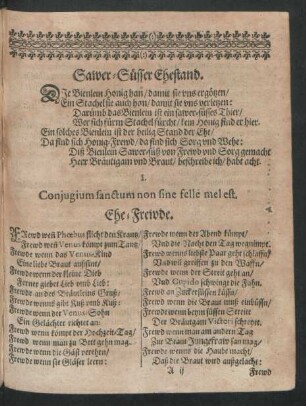 Sawer-Süsser Ehestand.
DIe Bienlein Honig han / damit sie vns ergötzen /
Ein Stachel sie auch hon / damit sie vns verletzen:
Darumb das Bienlein ist ein sawer-süsses Thier /
Wer sich fürm Stachel fürcht / kein Honig find er hier.
Ein solches Bienlein ist der heilig Stand der Ehe /
Da sind sich Honig-Frewd / da sind sich Sorg vnd Wehe:
Diß Bienlein Sawer-süß von Frewd vnd Sorg gemacht
Herr Bräutigam vnd Braut / beschreibe ich / habt acht.
1.
Conjugium sanctum non sine felle mel est.
Ehe-Frewde.
FRewd weñ Phœbus flicht den Krantz /
Frewd weñ Venus kömpt zum Tantz /
Frewde wenn das Venus-Kind
Eine liebe Braut
Frewde wenn der kleine Dieb
Ferner giebet Lieb vmb Lieb:
Frewde an des Bräutleins Gruß /
Frewde wenns gibt Kuß vmb Kuß:
Frewde wenn der Venus-Sohn
Ein Gelächter richtet an:
Frewd wenn kömpt der Hochzeit-Tag /
Frewd wenn man zu Bett gehn mag.
Frewde wenn die Gäst verehren /
Frewde wenn sie Gläser leern:
Frewde wenn der Abend kömpt /
Vnd die Nacht den Tag wegnimpt.
Frewd wenns liebste Paar geht schlaffn /
Vnd wil greiffen zu den Waffn /
Frewde wenn der Streit geht an /
Vnd Cupido schwingt die Fahn.
Frewd an Zuckersüssen küssn /
Frewd wenn die Braut muß einbüssn /
Frewde wenn beym süssen Streit
Der Bräutgam Victori schreyet.
Frewd wenn man am andern Tag
Zur Braut Jungefraw san mag /
Frewde wenns die Haube macht /
Daß die Braut wird außgelacht:
A ij Frewd